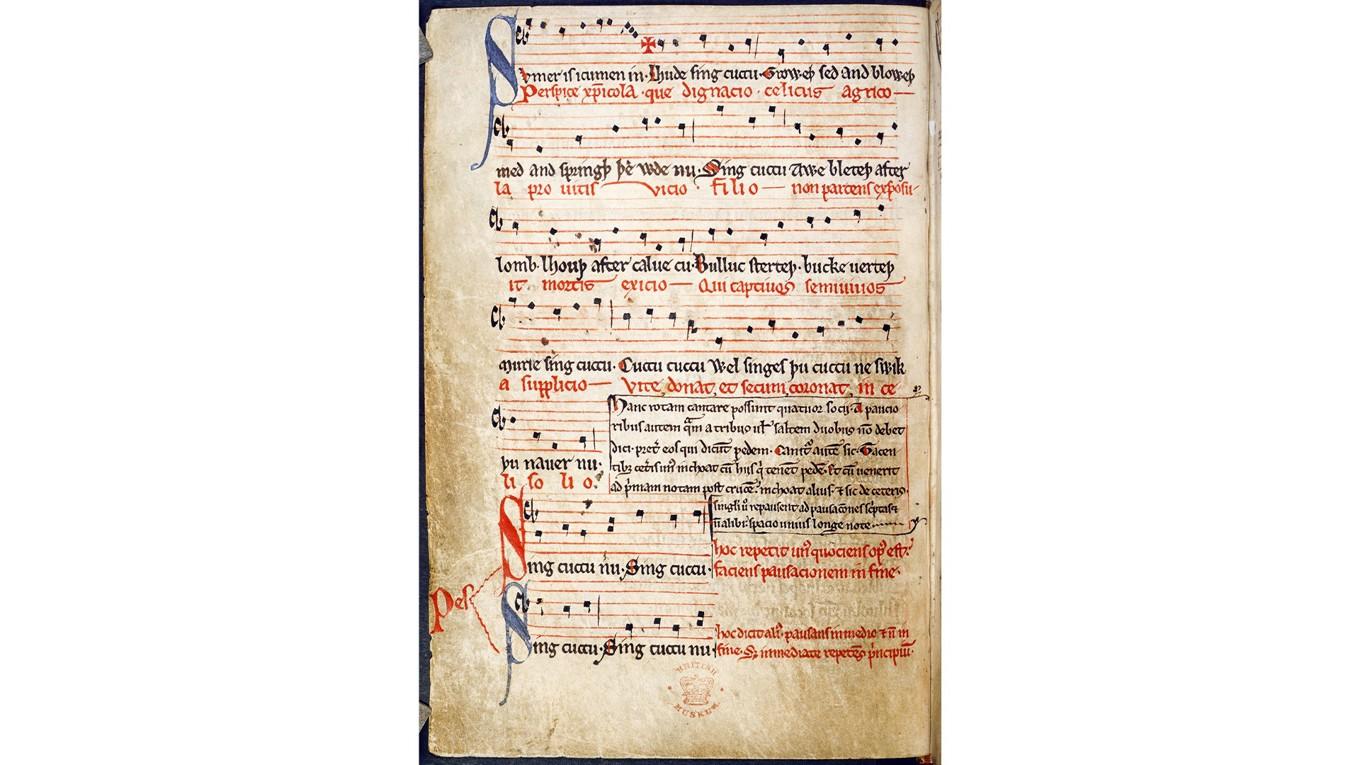 Symer is icumen in. Lhude sing cuccu. Groweþ sed and bloweþ
Perspice xp̄icola. que dignacio. celicus agrico
med and springþ þe wde nu. Sing cuccu Awe bleteþ after
la pro uitis vicio filio non parcens exposu-
lomb. lhouþ after calue cu. Bulluc sterteþ. bucke uerteþ
it mortis exicio Qui captiuos semiuiuos
murie sing cuccu. Cuccu cuccu Wel singes þu cuccu ne swik
a supplicio Vite donat et secum coronat in ce
þu nauer nu.
li so li o.
Hanc rotam cantare possunt quatuor socii. A paucio
ribus autem qͣm a tribus ul̕ saltem duobus nō debet
dici. pret̕ eos qui dicūt pedem. Canit̕ autē sic. Tacen
tibꝫ cet̕is un᷒ inchoat cū hiis q̕ tenēt pedē. Et cū uenerit
ad p̕mam notam post crucē. inchoat alius. ⁊ sic de ceteris.
singli u̕o repausent ad pausacōnes sc̕ptas ⁊
n̄ alibi. spacio unius longe note
Sing cuccu nu. Sing cuccu.
hoc repetit un᷒ quociens op᷒ est.
faciens pausacionem in fine.
Pes
Sing cuccu. Sing cuccu nu
hoc dicit ali᷒. pausans in medio ⁊ n̄ in
fine. Sꝫ immediate repetēs p̕ncipiū.
BRITISH
MUSEUM